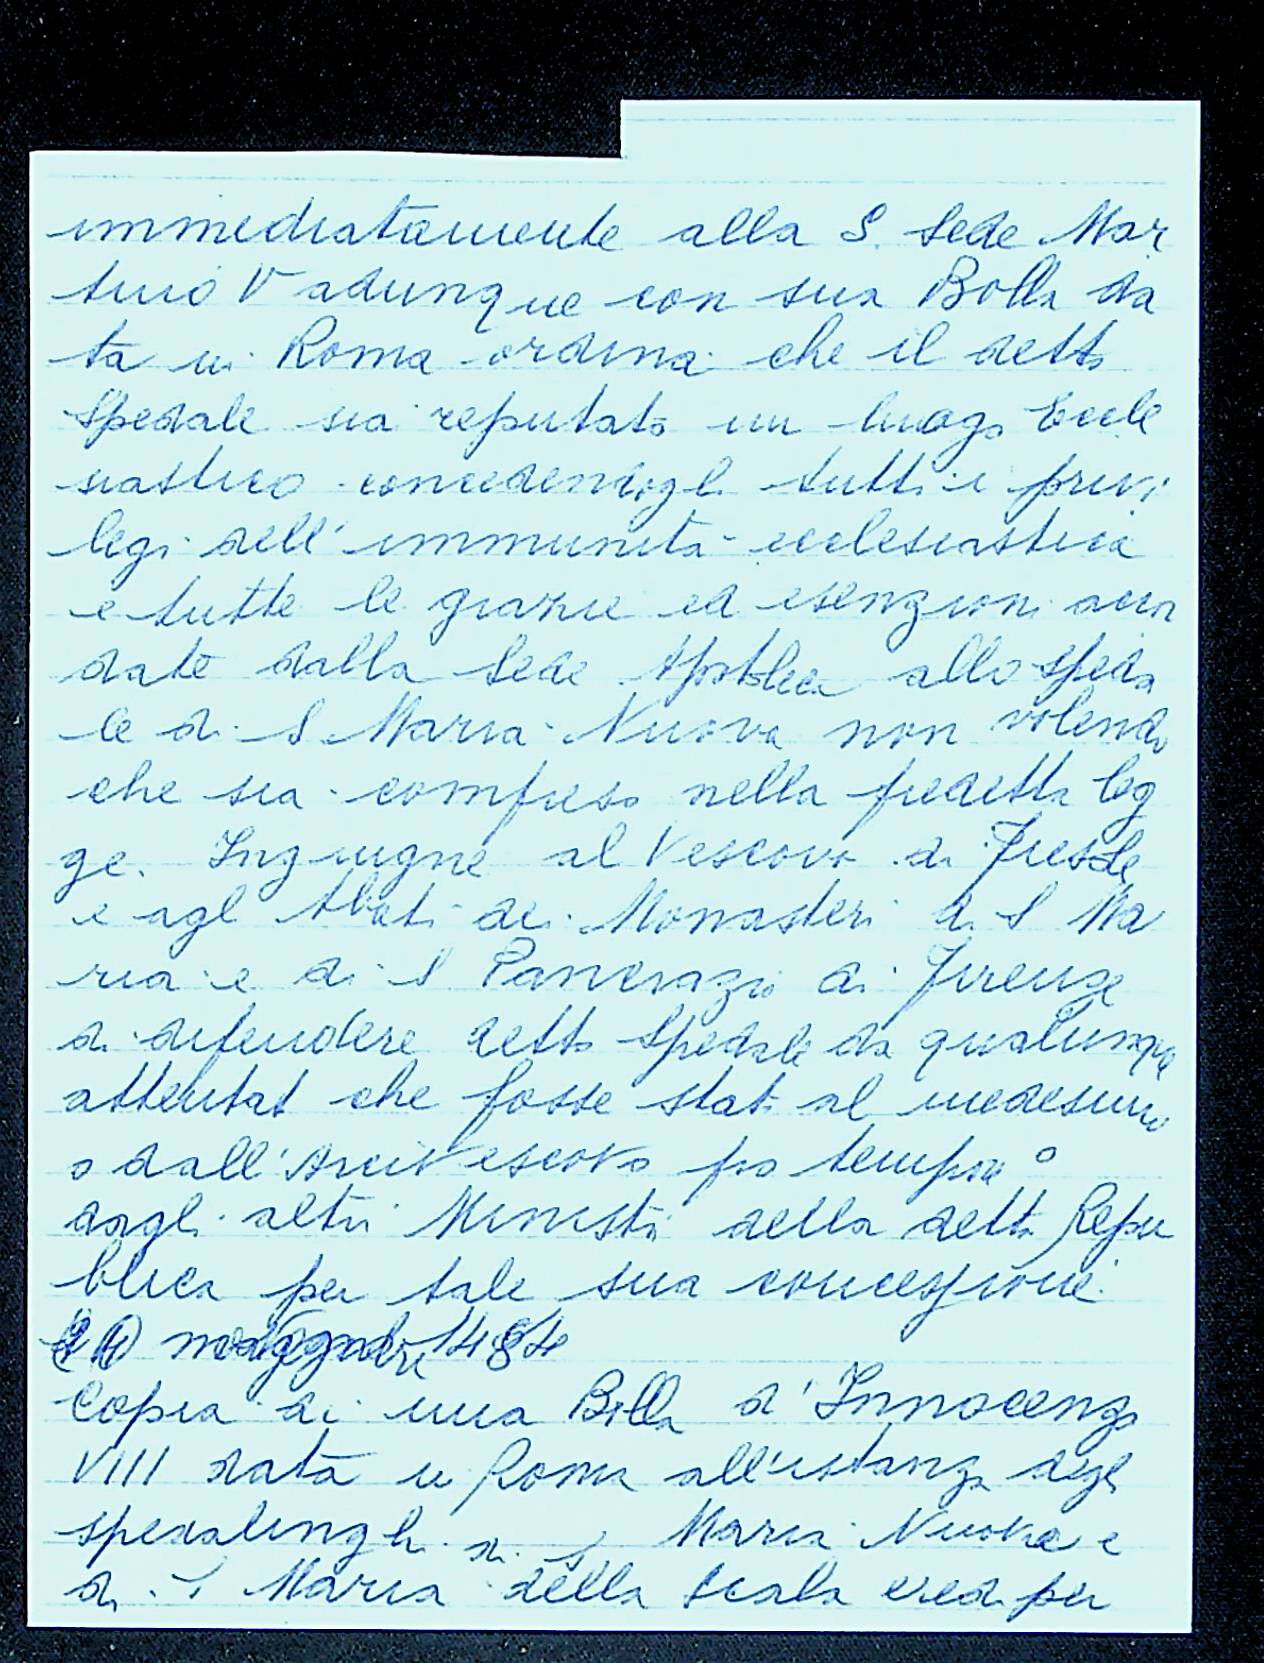 immediatamente alla S. Sede Mar
tino V adunque con sua Bolla da
ta in Roma ordina che il detto
Spedale sia reputato un luogo Eccle
siastico concedendogli tutti i privi
legi dell'immunità ecclesiastica
e tutte le grazie ed esenzioni accor
date dalla Sede Apostolica allo Speda
le di S Maria Nuova non volendo
che sia compreso nella predetta leg
ge. Ingiugne al Vescovo di Fiesole
e agl Abati dei Monasteri di S Ma
ria e di S Pancrazio di Firenze
di difendere detto Spedale da qualunque
attentat che fosse stat al medesimo
o dall'Arcivescovo pro tempore o
dagli altri Ministri della detta Repu
blica per tale sua concessione.
1484
Copia di una Bolla d'Innocenzo
VIII data in Roma all'istanza degl
spedalinghi di S Maria Nuova e
di S Maria della Scala eredi per